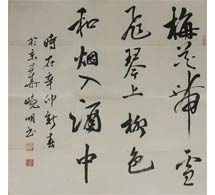 梅花带雪
飞琴上柳色
和烟入酒中
时在辛卯新春
于京华晓明书